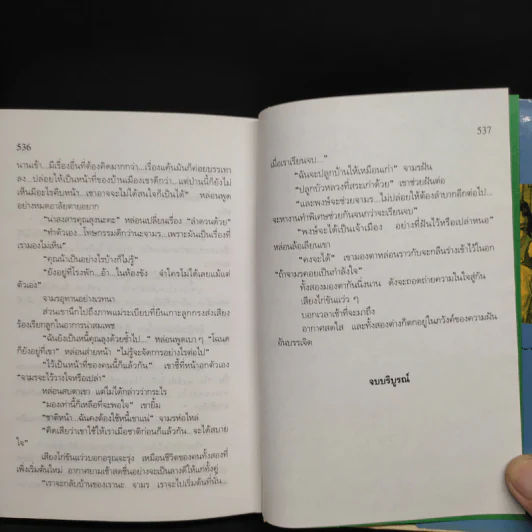 536
นานเข้า...มีเรื่องอื่นที่ต้องคิดมากกว่า...เรื่องแค้นมันก็ค่อยบรรเทา
ลง...ปล่อยให้เป็นหน้าที่ของบ้านเมืองเขาดีกว่า...แต่ป่านนี้ก็ยังไม่
เห็นมีอะไรคืบหน้า...เขาอาจจะไม่ได้สนใจก็เป็นได้" หล่อนพูด
อย่างหมดอาลัยตายอยาก
"น่าสงสารคุณลุงนะคะ" หล่อนเปลี่ยนเรื่อง "ลำดวนด้วย"
"ทำตัวเอง...โทษกรรมดีกว่านะจามร...เพราะมันเป็นเรื่องที่
เรามองไม่เห็น"
"คุณน้าเป็นอย่างไรบ้างก็ไม่รู้"
"ยังอยู่ที่โรงพัก...อ้า...ในห้องขัง จำใครไม่ได้เลยแม้แต่
ตัวเอง"
จามรอุทานอย่างเวทนา
ส่วนเขานึกไปถึงภาพแม่ระเบียบที่ยืนเกาะลูกกรงส่งเสียง
ร้องเรียกลูกในอาการน่าสมเพช
"ฉันยังเป็นหนี้คุณลุงด้วยซ้ำไป..." หล่อนพูดเบา ๆ "โฉนด
ก็ยังอยู่ที่เขา" หล่อนส่ายหน้า "ไม่รู้จะจัดการอย่างไรต่อไป"
"ไว้เป็นหน้าที่ของคนนี้ก็แล้วกัน" เขาชี้ที่หน้าอกตัวเอง
"จามรจะไว้วางใจหรือเปล่า"
หล่อนสบตาเขา แต่ไม่ได้กล่าวว่ากระไร
"มองเท่านี้ก็เหลือที่จะพอใจ" เขายิ้ม
"ชาติหน้า...ฉันคงต้องใช้หนี้เขาแน่" จามรห่อไหล่
"คิดเสียว่าเขาใช้ให้เราเมื่อชาติก่อนก็แล้วกัน...จะได้สบาย
ใจ"
เสียงไก่ขันแว่วบอกอรุณจะรุ่ง เหมือนชีวิตของคนทั้งสองที่
เพิ่งเริ่มต้นใหม่ อากาศยามเช้าสดชื่นอย่างจะเป็นลางดีให้แก่ทั้งคู่
"เราจะกลับบ้านของเรานะ จามร เราจะไปเริ่มต้นที่นั่น
537
เมื่อเราเรียนจบ..."
"ฉันจะปลูกบ้านให้เหมือนเก่า" จามรฝัน
"ปลูกบัวหลวงที่สระเก่าด้วย" เขาช่วยฝันต่อ
"และพงษ์จะช่วยจามร...ไม่ปล่อยให้ต้องลำบากอีกต่อไป...
จะหางานทำพิเศษช่วยกันจนกว่าจะเรียนจบ"
"พงษ์จะได้เป็นเจ้าเมือง อย่างที่ฝันไว้หรือเปล่าหนอ"
หล่อนล้อเลียนเขา
"คงจะได้" เขามองตาหล่อนราวกับจะกลืนร่างเข้าไว้ในอก
"ถ้าจามรคอยเป็นกำลังใจ"
ทั้งสองมองตากันนิ่งนาน ดังจะถอดถ่ายความในใจสู่กัน
เสียงไก่ขันแว่ว ๆ
บอกเวลาเช้าที่จะมาถึง
อากาศสดใส และทั้งสองต่างก็ตกอยู่ในภวังค์ของความฝัน
อันบรรเจิด
จบบริบูรณ์